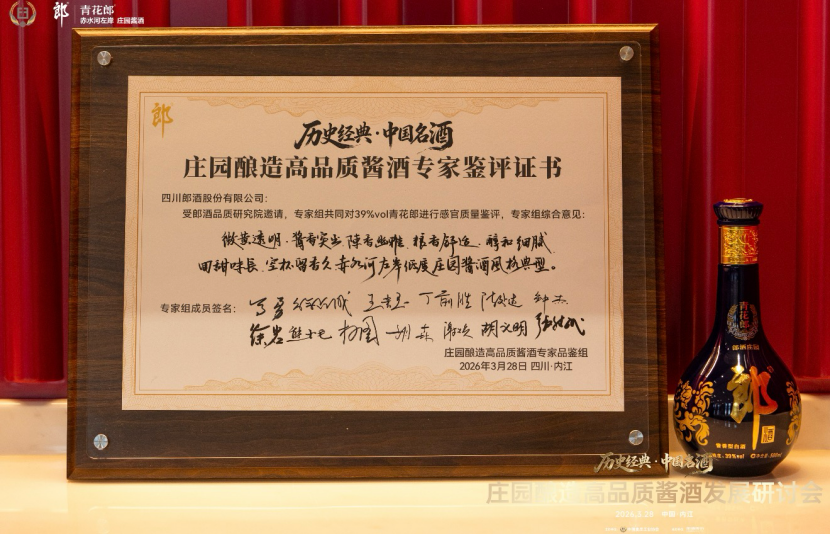 郎 青花郎
赤水河左岸 庄园酱酒
郎
历史经典·中国名酒
庄园酿造高品质酱酒专家鉴评证书
四川郎酒股份有限公司:
受郎酒品质研究院邀请,专家组共同对39%vol青花郎进行感官质量鉴评,专家组综合意见:
微黄透明、酱香突出、陈香幽雅、粮香舒适、醇和细腻
回甜味长、空杯留香久、赤水河左岸低度庄园酱酒风格典型。
专家组成员签名:
徐岩 胡义明
庄园酿造高品质酱酒专家品鉴组
2026年3月28日 四川·内江
青花郎
郎酒庄园
郎
酒
酱香型白酒
历史经典·中国名酒
庄园酿造高品质酱酒发展研讨会
2026.3.28 中国·内江